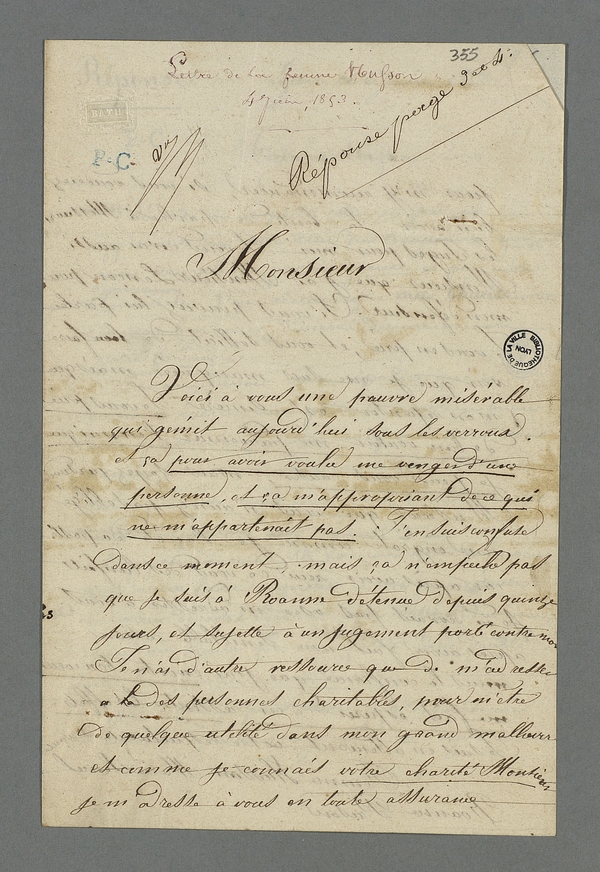 355
Lettre de la femme Husson
4 Juin 1853.
BATH
P.C.
Vu
Réponse page 3 et 4.
Monsieur
BIBLIOTHEQUE DE LA VILLE
LYON
Voici à vous une pauvre misérable
qui gémit aujourd'hui sous les verroux.
et ça pour avoir voulu me venger d'une
personne, et ça m'appropriant de ce qui
ne m'appartenait pas. J'en suis confuse
dans ce moment, mais ça n'empeche pas
que je suis à Roanne détenue depuis quinze
jours, et sujette à un jugement porté contre moi
Je n'ai d'autre ressource que de m'adresse
a des personnes charitables, pour m'etre
de quelque utilité dans mon grand malheur
et comme je connais votre charité Monsieur
je m'adresse à vous en toute assurance